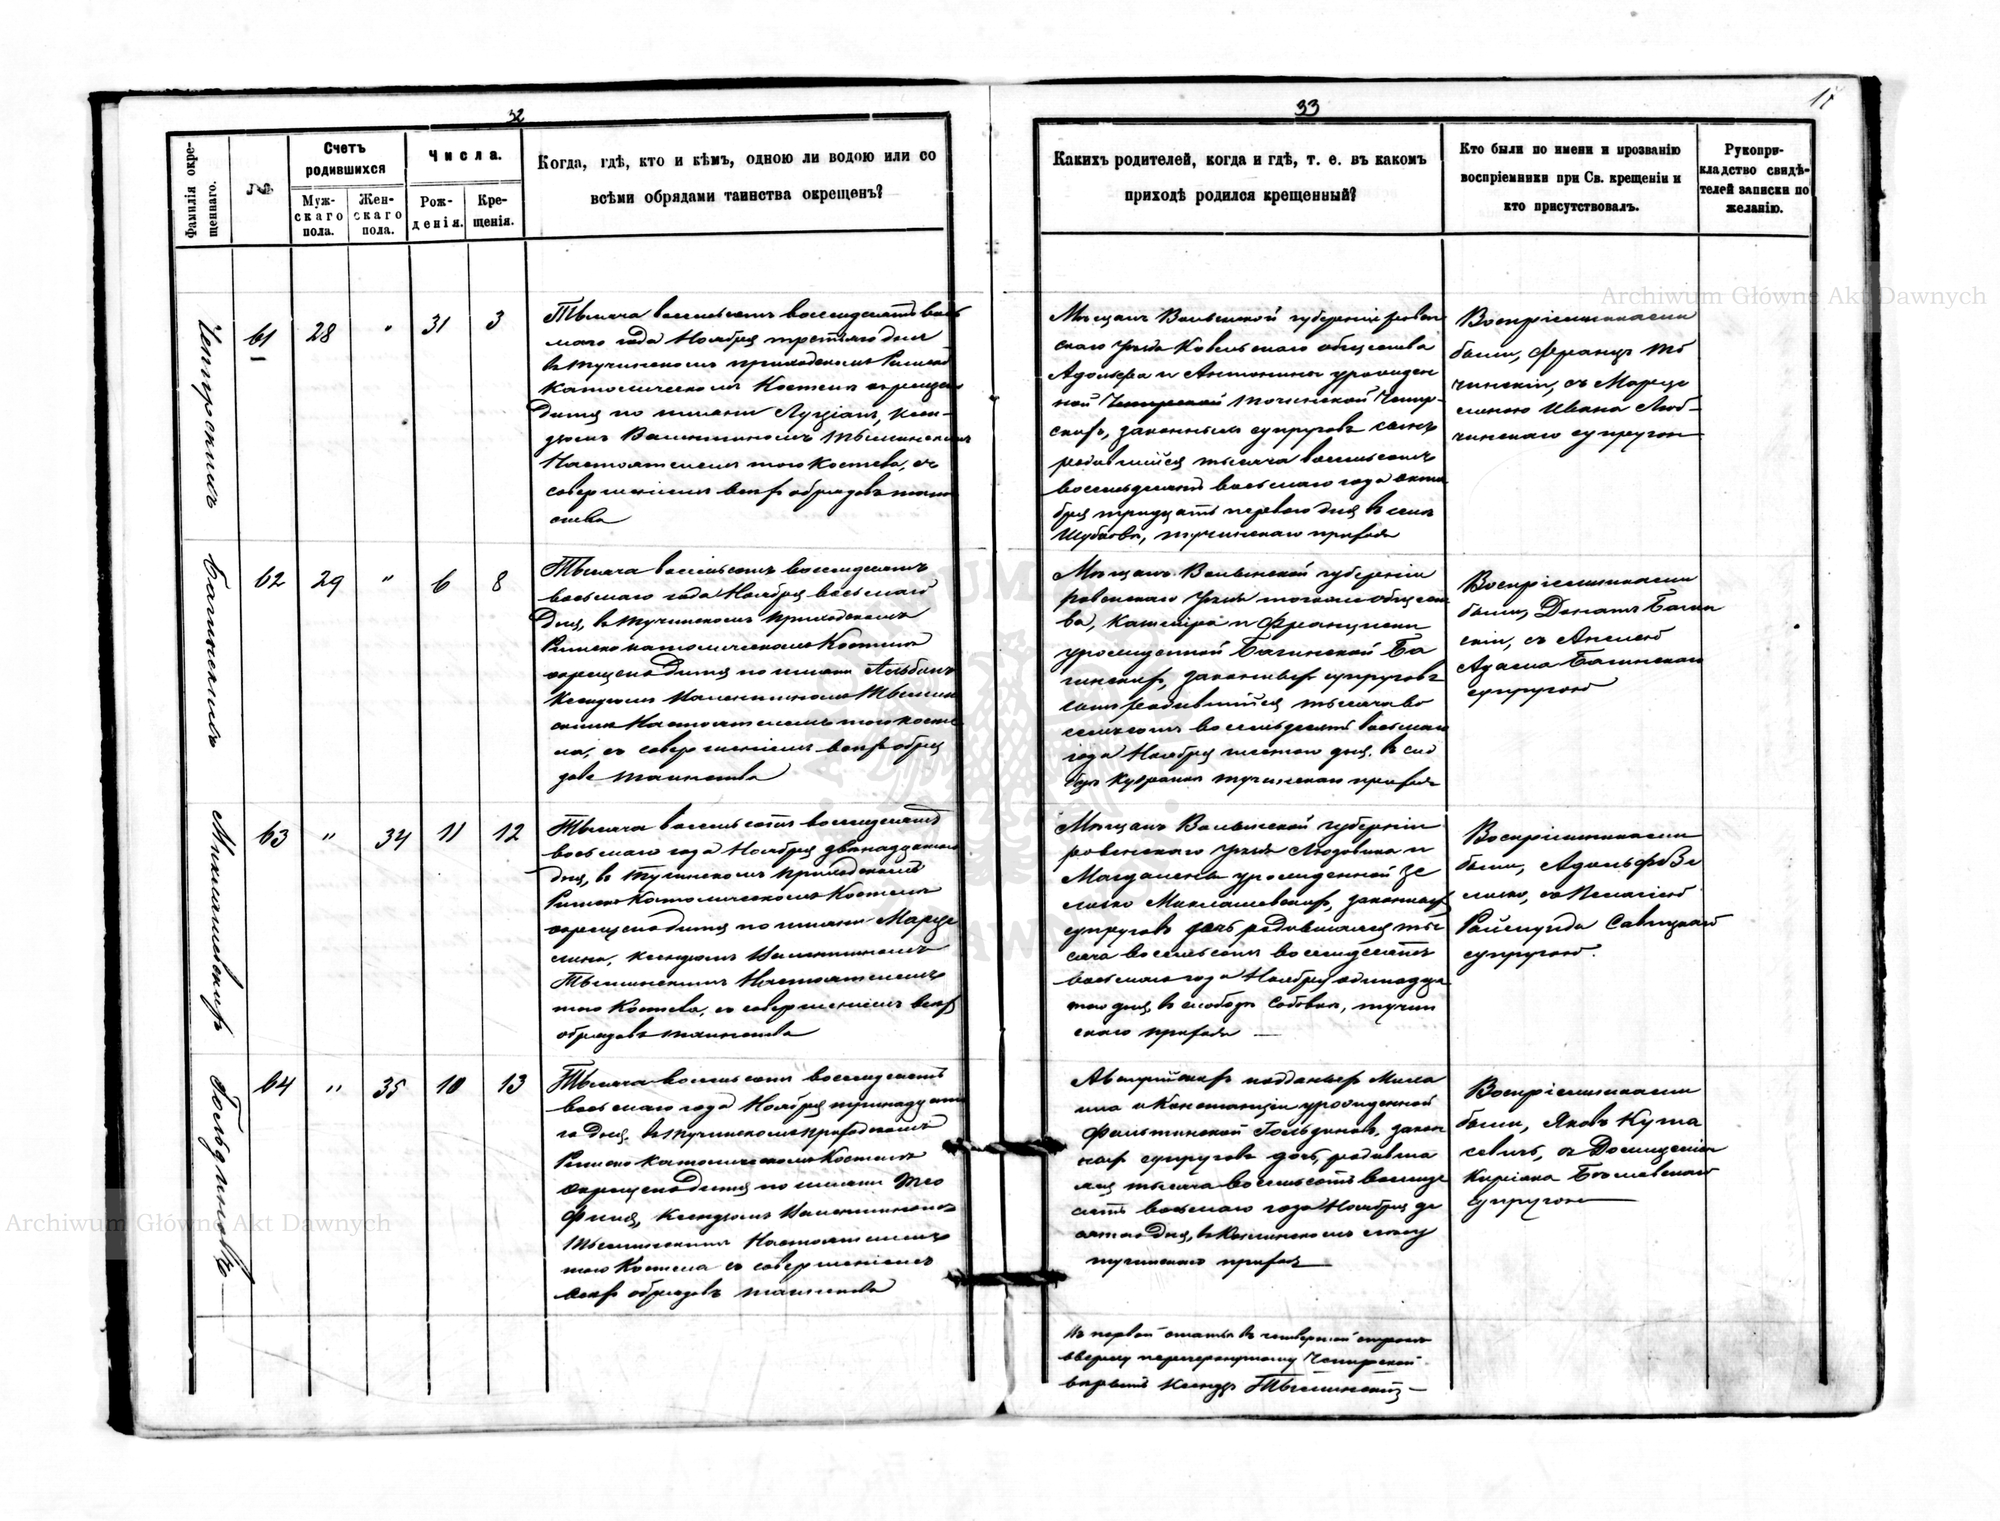 32
Фамилія окре-
щеннаго.
№
Счетъ
родившихся
Муж-
скаго
пола.
Жен-
скаго
пола.
Числа.
Рож-
денія.
Кре-
щенія.
Когда, гдѣ, кто и кѣмъ, одною ли водою или со
всѣми обрядами таинства окрещенъ?
61
28
"
31
3
Тысяча восемьсотъ восемдесятъ вось
маго года Ноября третьяго дня
въ Тучинскомъ приходскомъ Римско
Католическомъ Костелѣ окрещено
Дитя по имени Луціанъ, Ксен-
дзомъ Валентиномъ Тышинскимъ
Настоятелемъ того Костела, съ
совершеніемъ всѣхъ обрядовъ таин
ства
62
29
"
6
8
Тысяча восемьсотъ восемдесятъ
восьмаго года Ноября восьмаго
Дня, въ Тучинскомъ Приходскомъ
Римско католическомъ Костелѣ
окрещено Дитя по имени Альбинъ
Ксендзомъ Валентиномъ Тышин
скимъ Настоятелемъ того косте
ла, съ совершеніемъ всѣхъ обря
довъ таинства
Миклашевскихъ
63
"
34
11
12
Тысяча восемьсотъ восемдесятъ
восьмаго года Ноября двѣнадцатаго
дня, въ Тучинскомъ Приходскомъ
Римско Католическомъ Костелѣ
окрещено дитя по имени Марце
лина, Ксендзомъ Валентиномъ
Тышинскимъ Настоятелемъ
того Костела, съ совершеніемъ всѣхъ
обрядовъ таинства
64
"
35
10
13
Тысяча восемьсотъ восемдесятъ
восьмаго года Ноября тринадцата
го Дня, въ Тучинскомъ приходскомъ
Римско католическомъ Костелѣ
Окрещено Дитя по имени Тео
филя, Ксендзомъ Валентиномъ
Тышинскимъ Настоятелемъ
того Костела съ совершеніемъ
всѣхъ обрядовъ таинства
33
17
Какихъ родителей, когда и гдѣ, т. е. въ какомъ
приходѣ родился крещенный?
Кто были по имени и прозванію
воспріемники при Св. крещеніи и
кто присутствовалъ.
Рукопри-
кладство свидѣ-
телей записки по
желанію.
Мѣщанъ Волынской губерніи ровен
скаго уѣзда Ковельскаго общества
Адольфа и Антонины урожден
ной
законныхъ супруговъ сынъ
родившійся тысяча восемьсотъ
восемьдесятъ восьмаго года октя
бря тридцать перваго дня въ селѣ
Тучинскаго прихода
Воспріемниками
были, Францъ
съ Марце
линою Ивана
супругою
Мѣщанъ Волынской губерніи
ровенскаго уѣзда того же общест
ва, Касміра и Францишки
урожденной Багинской Ба
гинскихъ, законныхъ супруговъ
сынъ родившійся тысяча во
семьсотъ восемьдесятъ восьмаго
года Ноября шестаго дня, въ сло
бодѣ Тучинскаго прихода
Воспріемниками
были, Донатъ Багин
скій, съ Анелею
Адама Багинскаго
супругою
Мѣщанъ Волынской губерніи
ровенскаго уѣзда Людовика и
Магдалены урожденной Зе
ленко Миклашевскихъ, законныхъ
супруговъ дочь родившаяся ты
сяча восемьсотъ восемдесятъ
восьмаго года Ноября одинадца
таго дня, въ слободѣ Тучин
скаго прихода
Воспріемниками
были, Адольфъ Зе
ленко, съ Пелагіею
Раймунда Савицкаго
супругою.
Австрійскихъ подданныхъ Миха
ила и Констанціи урожденной
закон
ныхъ супруговъ дочь, родивша
яся тысяча восемьсотъ восемде
сятъ восьмаго года Ноября де
сятаго Дня, въ
тучинскаго прихода
Воспріемниками
были, Яковъ Кута
севичъ, съ Домицеліею
Киріана
супругою
Въ первой статьѣ въ четвертой строкѣ
сверху перечеркнутому
вѣрить Ксендзъ Тышинскій
Archiwum Główne Akt Dawnych
Archiwum Główne Akt Dawnych